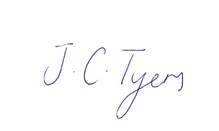 J. C. Tyers